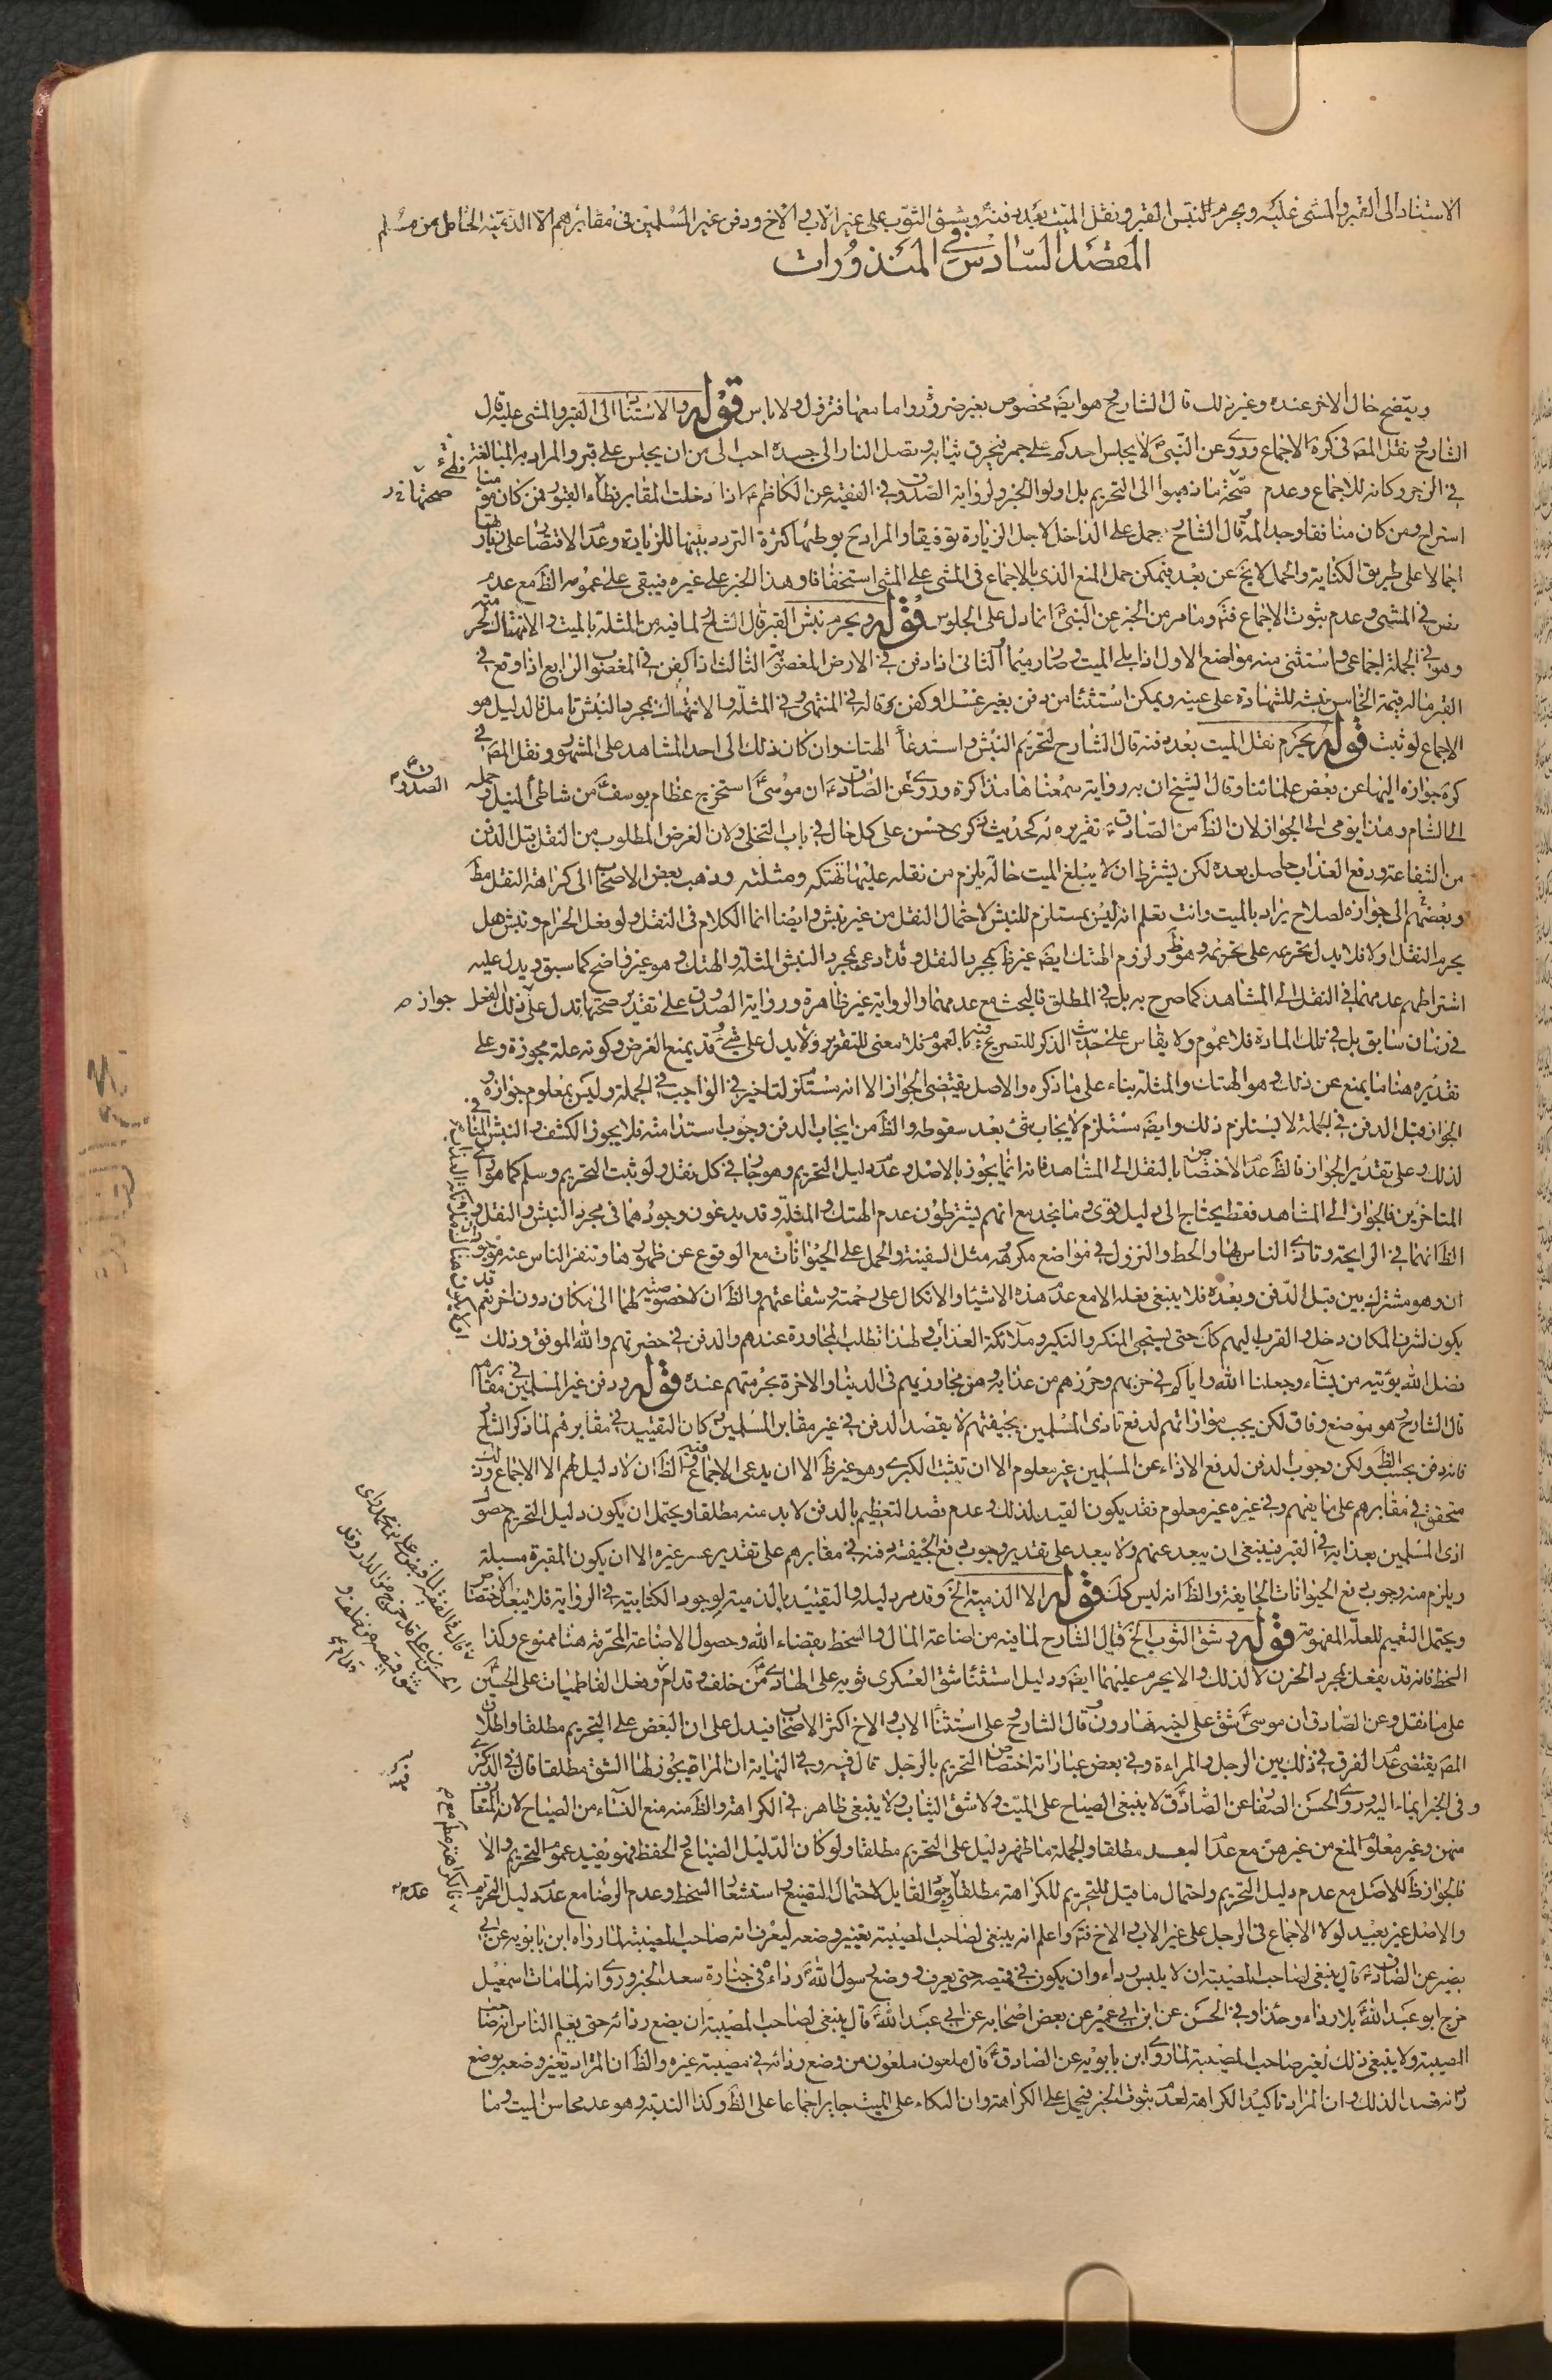 الاستناد الى القبر والمشى عليه ويحرم النبش القبر ونقل الميت بعد دفنه وبشق الثوب على غير الاب والاخ ودفن غير المسلمين فى مقابرهم الا الذمية الحامل من مسلم
المقصد السادس فى المنذورات
ويتضح حال الاخر عنده وغير ذلك قال الشارح هو ايضا مخصوص بغير ضرورة واما معها فتزول ولا باس قوله والاستناد الى القبر والمشى عليه قال
الشارح نقل المص فى كرة الاجماع وروى عن النبى لا يجلس احدكم على جمر فيحرق ثيابه وتصل النار الى جسده احب الى من ان يجلس على قبر والمراد به المبالغة
فى الزجر وكانه للاجماع وعدم صحة ما ذهبوا الى التحريم بل اولوا الخبر ولرواية الصدوق فى الفقيه عن الكاظم اذا دخلت المقابر فطأ القبور فمن كان مؤمنا
استراح ومن كان منافقا وجد المه قال الشارح حمل على الداخل لاجل الزيارة توفيقا والمراد ح بوطئها كثرة التردد بينها للزيارة وعدم الاقتصار على زيارتها
اجمالا على طريق الكناية والحمل لا يخ عن بعد فيمكن حمل المنع الذى بالاجماع فى المشى على المشى استخفافا وهذا الخبر على غيره فيبقى على عمومه الظ مع عدم
نص فى المشى وعدم ثبوت الاجماع فتم وما مر من الخبر عن النبى انما دل على الجلوس قوله ويحرم نبش القبر قال الشارح لما فيه من المثلة بالميت والانتهاك لحرمته
وهو فى الجملة اجماعى واستثنى منه مواضع الاول اذا بلى الميت وصار رميما الثانى اذا دفن فى الارض المغصوبة الثالث اذا كفن فى المغصوب الرابع اذا وقع فى
القبر ما له قيمة الخامس نبشه للشهادة على عينه ويمكن استثنا من دفن بغير غسل او كفن وقاله فى المنتهى وفى المثلة والانتهاك بمجرد النبش تامل فالدليل هو
الاجماع لو ثبت قوله يحرم نقل الميت بعد دفنه قال الشارح لتحريم النبش واستدعائه الهتك وان كان ذلك الى احد المشاهد على المشهور ونقل المص فى
كرة جوازه اليها عن بعض علمائنا وقال الشيخ ان به رواية سمعناها مذاكرة وروى عن الصادق ان موسى استخرج عظام يوسف من شاطئ النيل وحمله
الى الشام وهذا يومى الى الجواز لان الظ من الصادق تقريره له كحديث ذكرى حسن على كل حال فى باب التخلى ولان الغرض المطلوب من النقل قبل الدفن
من الشفاعة ودفع العذاب حاصل بعده لكن يشترط ان لا يبلغ الميت حالة يلزم من نقله عليها تهتكه ومثلته وذهب بعض الاصحاب الى كراهة النقل مط
وبعضهم الى جوازه لصلاح يراد بالميت وانت تعلم انه ليس بمستلزم للنبش لاحتمال النقل من غير نبش وايضا انما الكلام فى النقل ولو فعل الحرام ونبش هل
يحرم النقل اولا فلا يدل تحريمه على تحريمه وهو ظ ولزوم الهتك ايضا غير ظ بمجرد النقل وقد ادعى بمجرد النبش المثلة والهتك وهو غير واضح كما سبق ويدل عليه
اشتراطهم عدمهما فى النقل الى المشاهد كما صرح به بل فى المطلق فالبحث مع عدمهما والرواية غير ظاهرة ورواية الصدوق على تقدير صحتها تدل على ذلك الفعل
فى زمان سابق بل فى تلك المادة فلا عموم ولا يقاس على حديث الذكر للتصريح فيه بالعموم فلا معنى للتقرير ولا يدل على شئ وقد يمنع الغرض وكونه علة مجوزة وعلى
تقديره هنا ما يمنع عن ذلك وهو الهتك والمثلة بناء على ما ذكره والاصل يقتضى الجواز الا انه مستلزم لتاخير فى الواجب فى الجملة وليس بمعلوم جوازه و
الجواز قبل الدفن فى الجملة لا يستلزم ذلك وايضا مستلزم لايجاب شئ بعد سقوطه والظ من ايجاب الدفن وجوب استدامته فلا يجوز الكشف والنبش المنافى
لذلك وعلى تقدير الجواز فالظ عدم الاختصاص بالنقل الى المشاهد فانه انما يجوز بالاصل وعدم دليل التحريم وهو جار فى كل نقل ولو ثبت التحريم وسلم كما هو راى
المتاخرين فالجواز الى المشاهد فقط يحتاج الى دليل قوى وما نجد مع انهم يشترطون عدم الهتك والمثلة وقد يدعون وجودهما فى مجرد النبش والنقل و
الظ انهما فى الرايحة وتاذى الناس بها والحط والنزول فى مواضع مكروهة مثل السفينة والحمل على الحيوانات مع الوقوع عن ظهورها وتنفر الناس عنه موجود
ان وهو مشترك بين قبل الدفن وبعده فلا ينبغى نقله الا مع عدم هذه الاشياء والاتكال على رحمته وشفاعتهم والظ ان لا خصوصية لهما الى مكان دون اخر نعم قد
يكون لشرف المكان دخل والقرب اليهم كانه حتى يستحى المنكر والنكير وملائكة العذاب ولهذا تطلب المجاورة عندهم والدفن فى حضرتهم والله الموفق وذلك
فضل الله يؤتيه من يشاء وجعلنا الله واياكم فى حزبهم وحرزهم من عذابه ومن مجاوريهم فى الدنيا والاخرة بحرمتهم عنده قوله ودفن غير المسلمين فى مقابرهم
قال الشارح هو موضع وفاق لكن يجب مواراتهم لدفع تاذى المسلمين بجيفتهم لا بقصد الدفن فى غير مقابر المسلمين كان التقييد فى مقابرهم لما ذكر الشارح
فانه دفن بحسب الظ ولكن وجوب الدفن لدفع الاذاء عن المسلمين غير معلوم الا ان تثبت الكبرى وهو غير ظ الا ان يدعى الاجماع فيه والظ ان لا دليل لهم الا الاجماع وذلك
متحقق فى مقابرهم على ما يفهم وفى غيره غير معلوم فقد يكون القيد لذلك وعدم قصد التعظيم بالدفن لا بد منه مطلقا ويحتمل ان يكون دليل التحريم حصول
اذى المسلمين بعذابه فى القبر فينبغى ان يبعد عنهم ولا يبعد على تقدير وجوب دفع الجيفة دفنه فى مقابرهم على تقدير عسر غيره الا ان يكون المقبرة مسبلة
ويلزم منه وجوب دفع الحيوانات الجايفة والظ انه ليس كذلك قوله الا الذمية الخ وقد مر دليله والتقييد بالذمية لوجود الكتابية فى الرواية فلا يبعد الاختصاص
ويحتمل التعميم للعلة المفهومة قوله وشق الثوب الخ قال الشارح لما فيه من اضاعة المال والسخط بقضاء الله وحصول الاضاعة المحرمة هنا ممنوع وكذا
السخط فانه قد يفعل بمجرد الحزن لا لذلك والا يحرم عليهما ايضا ودليل استثنا شق العسكرى ثوبه على الهادى من خلف وقدام وفعل الفاطميات على الحسين
على ما نقل وعن الصادق ان موسى شق على اخيه هارون قال الشارح وعلى استثنا الاب والاخ اكثر الاصحاب فيدل على ان البعض على التحريم مطلقا واطلاق
المص يقتضى عدم الفرق فى ذلك بين الرجل والمراءة وفى بعض عباراته اختصاص التحريم بالرجل قال فيه وفى النهاية ان المراة يجوز لها الشق مطلقا قال فى الذكرى
وفى الخبر ايماء اليه وروى الحسن الصفار عن الصادق لا ينبغى الصياح على الميت ولا شق الثياب ولا ينبغى ظاهر فى الكراهة والظ منه منع النساء من الصياح لانه المتعارف
منهن وغير معلوم المنع من غيرهن مع عدم البعد مطلقا وبالجملة ما ظهر دليل على التحريم مطلقا ولو كان الدليل الضياع والحفظ فهو يفيد عموم التحريم والا
فالجواز ظ للاصل مع عدم دليل التحريم واحتمال ما قيل للتحريم للكراهة مطلقا وجود القايل لاحتمال التضييع واستشعار السخط وعدم الرضا مع عدم دليل التحريم
والاصل غير بعيد لولا الاجماع فى الرجل على غير الاب والاخ فتم واعلم انه ينبغى لصاحب المصيبة تغيير وضعه ليعرف انه صاحب المصيبة لما رواه ابن بابويه عن ابى
بصير عن الصادق قال ينبغى لصاحب المصيبة ان لا يلبس رداء وان يكون فى قميصه حتى يعرف ووضع رسول الله رداءه فى جنازة سعد الخبر وروى انه لما مات اسمعيل
خرج ابو عبد الله بلا رداء وحذاء وفى الحسن عن ابن ابى عمير عن بعض اصحابه عن ابى عبد الله قال ينبغى لصاحب المصيبة ان يضع ردائه حتى يعلم الناس انه صاحب
المصيبة ولا ينبغى ذلك لغير صاحب المصيبة لما روى ابن بابويه عن الصادق قال ملعون ملعون من وضع ردائه فى مصيبة غيره والظ ان المراد تغيير وضعه بوضع
ردائه قصدا لذلك وان المراد تاكيد الكراهة لعدم ثبوت الخبر فيحمل على الكراهة وان البكاء على الميت جايز اجماعا على الظ وكذا الندبة وهو عد محاسن الميت وما
صحتها
الصدوق
جواز
عدم